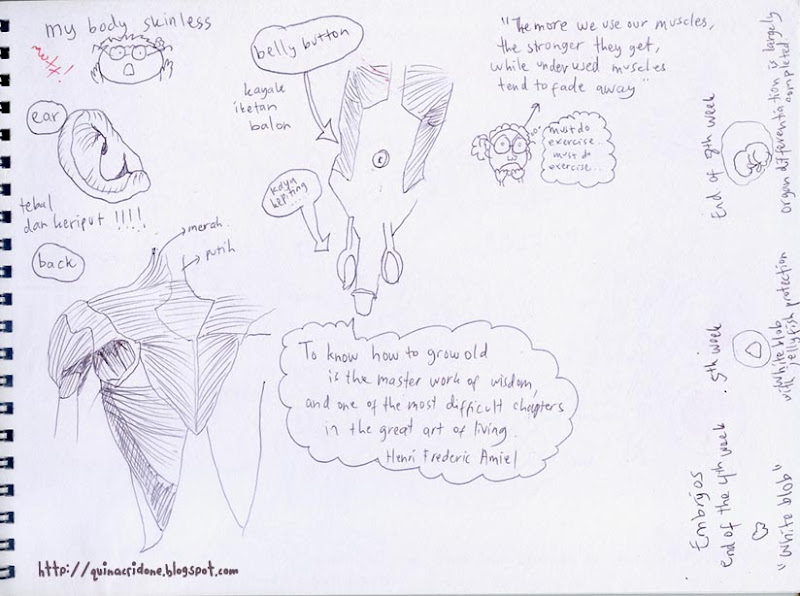 my body skinless
ear
tebal
dan keriput !!!!
back
merah
putih
belly button
kayak
iketan
balon
kaya
kepiting...
"The more we use our muscles,
the stronger they get,
while underused muscles
tend to fade away"
must do
exercise...
must do
exercise...
To know how to grow old
is the master work of wisdom,
and one of the most difficult chapters
in the great art of living.
Henri Frederic Amiel
Embryos
end of the 4th week
"White blob"
5th week
White blob
with jellyfish protection
End of 8th week
organ differentation is largely
completed.
http://quinacridone.blogspot.com